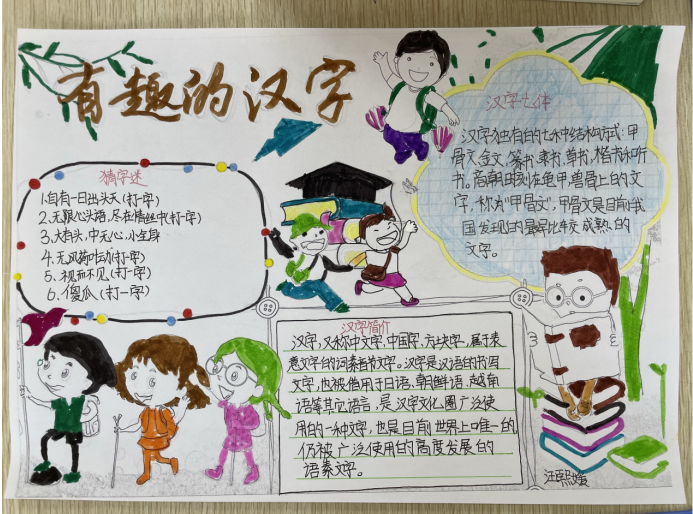 有趣的汉字
猜字迷
1.自有一日出头天(打一字)
2.无限心头语,尽在情丝中(打一字)
3.大有头,中无心,小全身
4.无风荷叶动(打一字)
5.视而不见(打一字)
6.傻瓜(打一字)
汉字七体
汉字独有的七种结构方式:甲
骨文、金文、篆书、隶书、草书、楷书和行
书。商朝时刻在龟甲、兽骨上的文
字,称为"甲骨文",甲骨文是目前我
国发现的最早比较成熟的
文字。
汉字简介
汉字,又称中文字,中国字,方块字,属于表
意文字的词素音节文字。汉字是汉语的书写
文字,也被借用于日语、朝鲜语、越南
语等其它语言,是汉字文化圈广泛使
用的一种文字,也是目前世界上唯一的
仍被广泛使用的高度发展的
语素文字。
汪熙媛